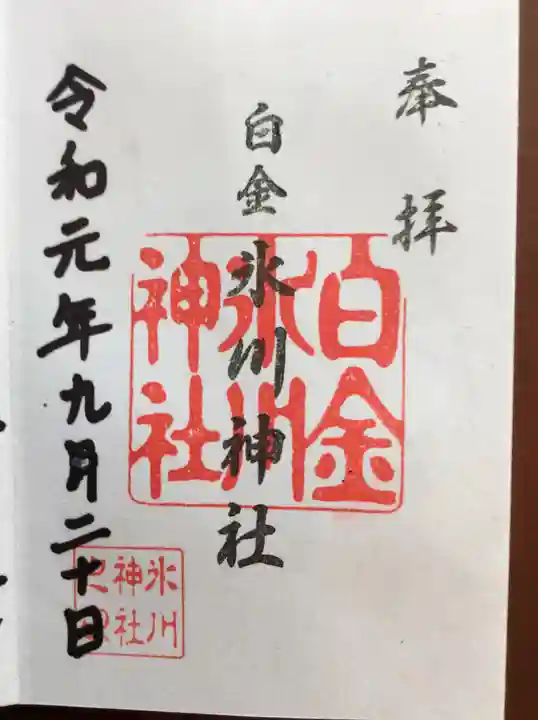 奉拝
白金氷川神社
白金
氷川
神社
令和元年九月二十日
氷川
神社
之印